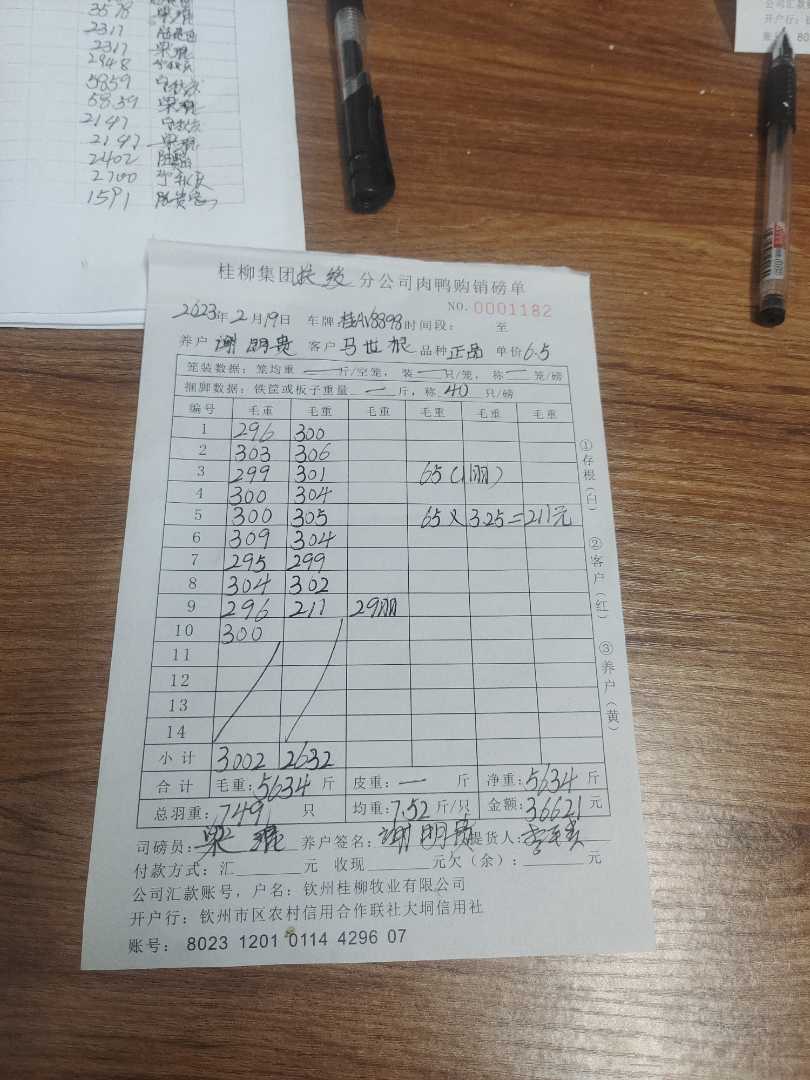 3578
2317
2317
2948
5859
5839
2147
2147
2402
2700
1591
公司汇款
开户行:
账号: 80
桂柳集团扶绥分公司肉鸭购销磅单
NO.0001182
2023年2月19日 车牌:桂A18898时间段: 至
养户 谢明贵 客户 马世根 品种 正品 单价6.5
笼装数据:笼均重 一 斤/空笼,装 一 只/笼,称 一 笼/磅
捆脚数据:铁筐或板子重量 一 斤,称 40 只/磅
编号 毛重 毛重 毛重 毛重 毛重 毛重
1 296 300
2 303 306
3 299 301 65(
4 300 304
5 300 305 65×3.25=211元
6 309 304
7 295 299
8 304 302
9 296 211 29
10 300
11
12
13
14
小计 3002 2632
合计 毛重:5634斤 皮重:一 斤 净重:5634斤
总羽重:749 只 均重:7.52斤/只 金额:36621元
司磅员:梁琨 养户签名:谢明贵 提货人:
付款方式:汇 元 收现 元欠(余): 元
公司汇款账号,户名:钦州桂柳牧业有限公司
开户行:钦州市区农村信用合作联社大垌信用社
账号: 8023 1201 0114 4296 07
①存根(白) ②客户(红) ③养户(黄)